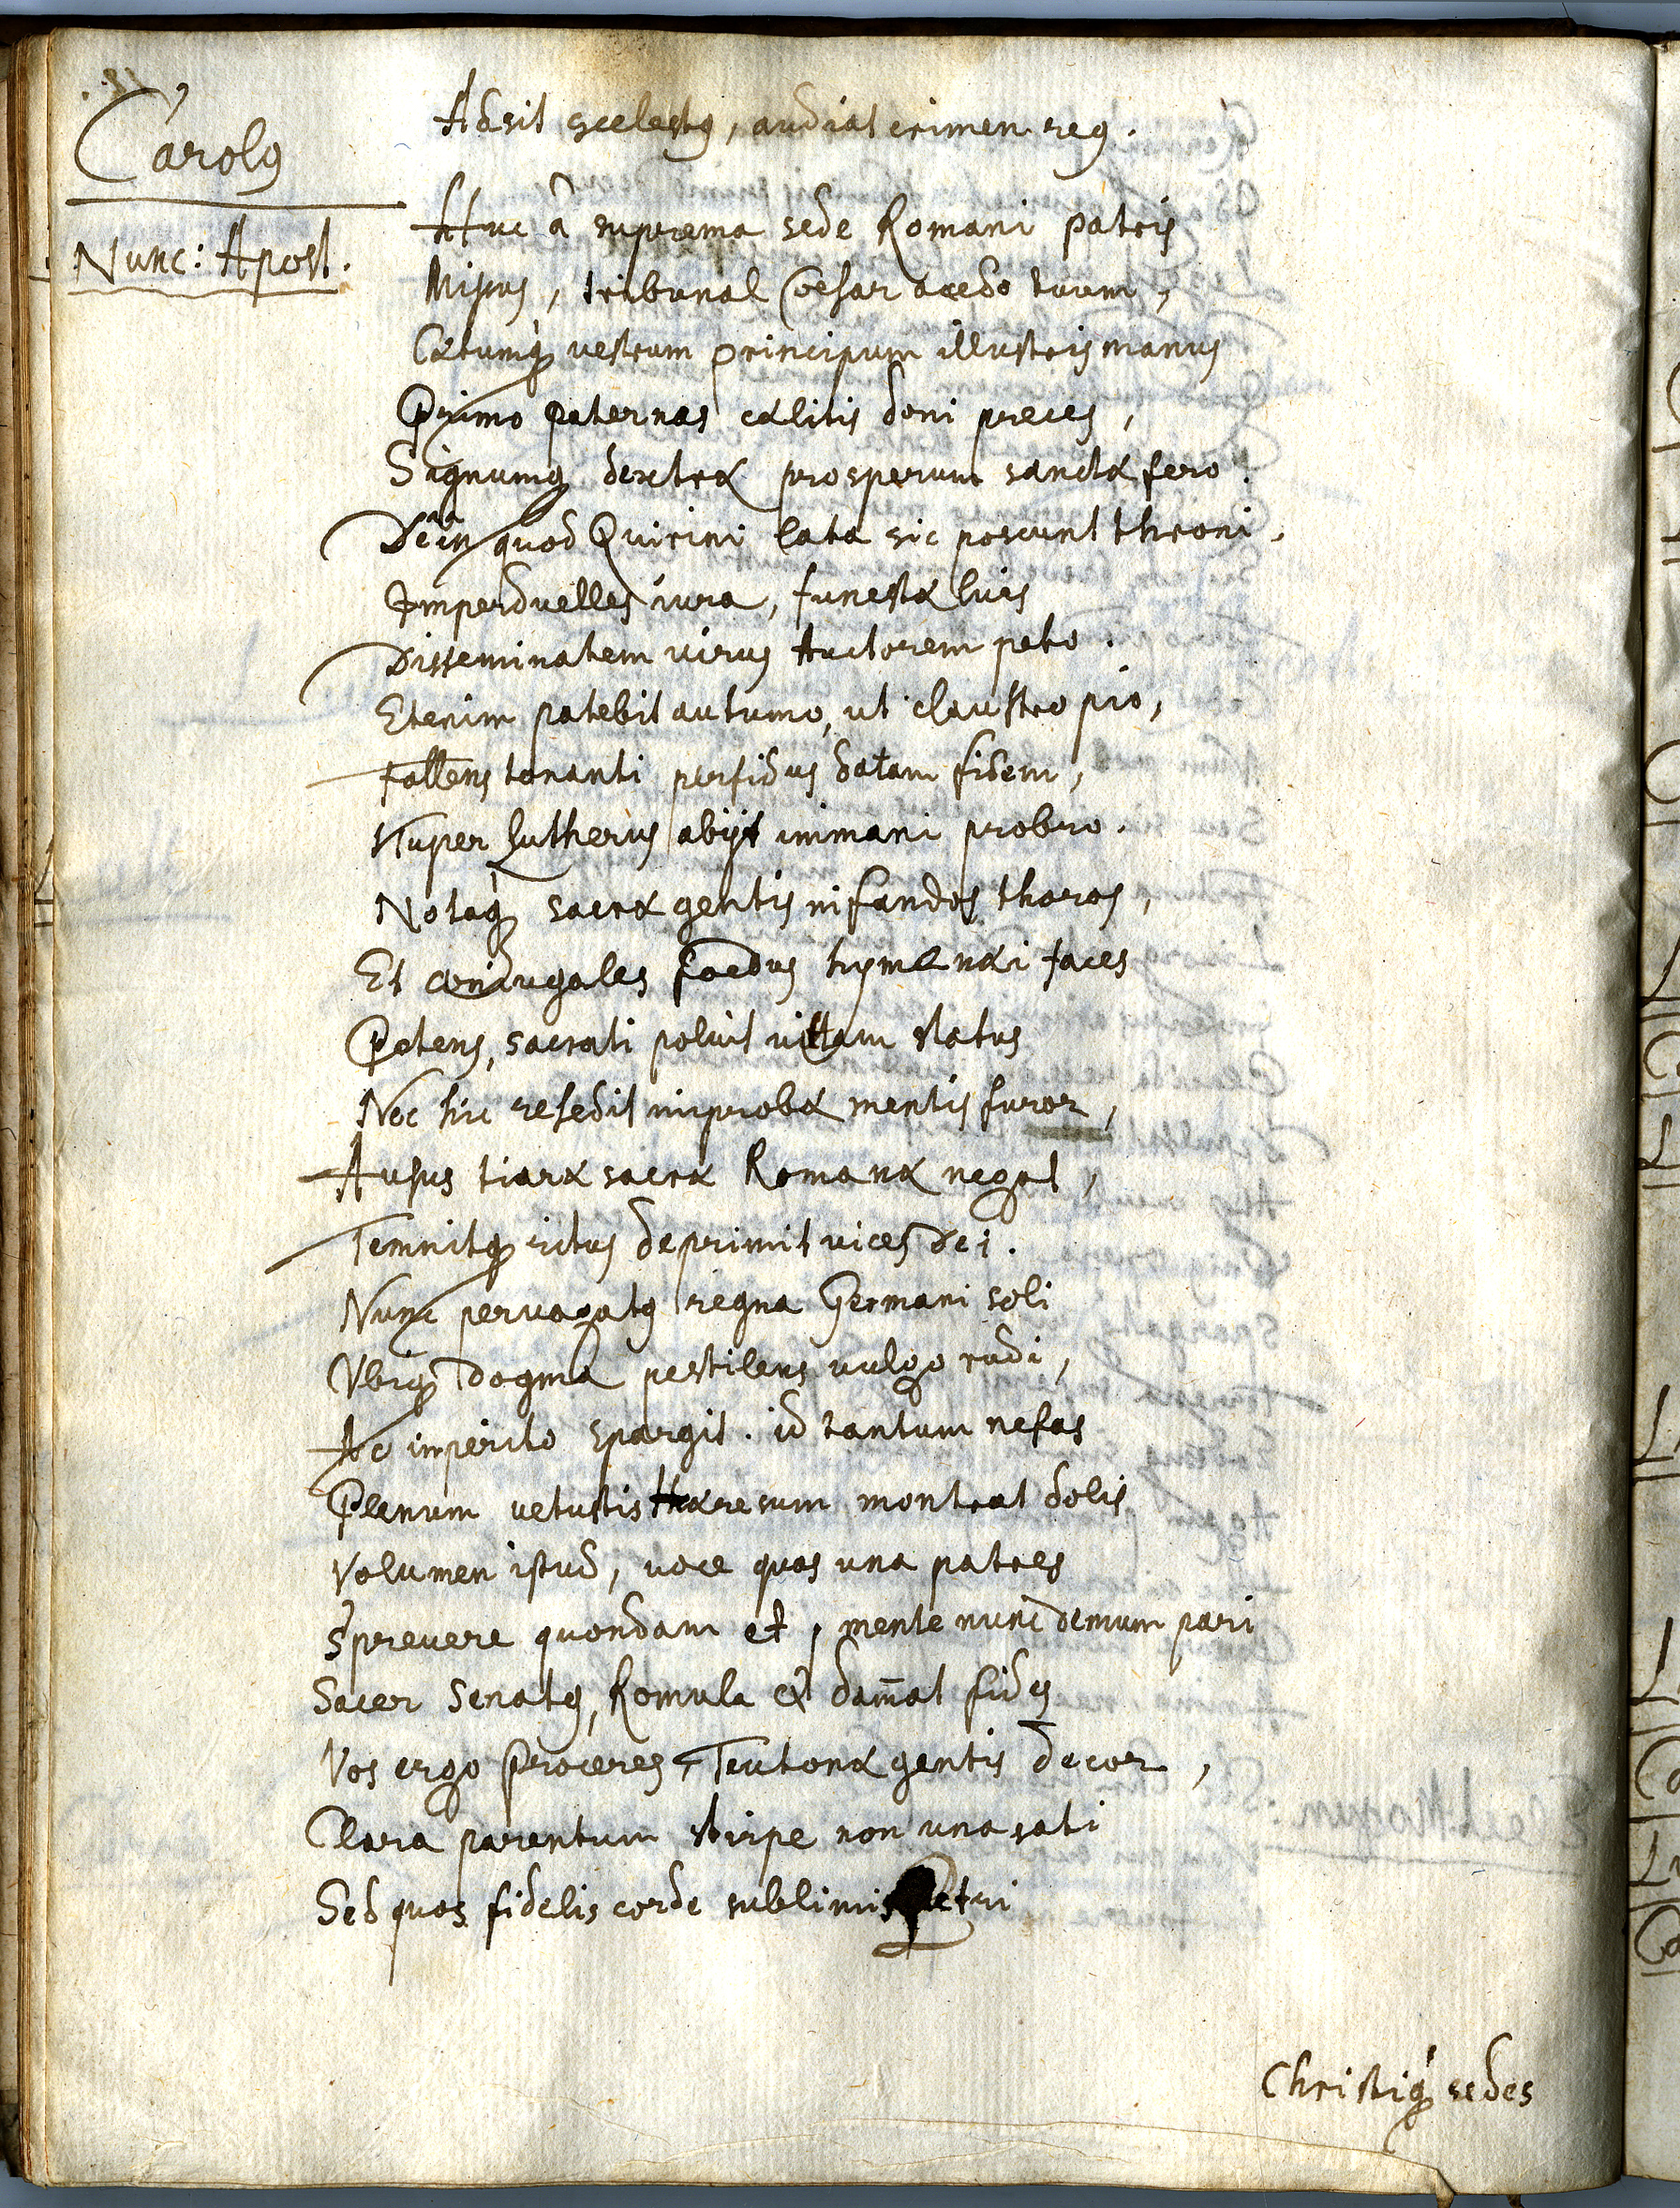 Carolꝯ
Adsit scelestꝯ, audiat crimen reꝯ.
Nunc: Apost.
Huc à suprema sede Romani patris
Missus, tribunal Cæsar accedo tuum,
Cætumq́ꝫ vestrum principum illustris manus
Primo paternas cælitis doni preces,
Signumqꝫ dextræ prosperum sanctæ fero.
Dein quod Quirini lata sic poscunt throni,
Imperduelles iura, funestæ luis
Disseminatem virus Auctorem peto.
Etenim patebit autumo, ut claustro pio,
Fallens tonanti perfidus datam fidem,
Nuper Lutherus abijt immani probro.
Notaq́ꝫ sacræ gentis nifandos thoros,
Et coniugales foedus hymenæi faces
Petens, sacrati poluit vittam status
Nec hic resedit improbæ mentis furor,
Ausus tiaræ sacræ Romanæ negat,
Temnitqꝫ ritus deprimit vices Dei.
Nunc pervagatꝯ regna Germani soli
Vbiqꝫ dogma pestilens vulgo rudi,
Ac imperito spargit. id tantum nefas
Plenum vetustis Hæresum monstrat dolis
Volumen istud, voce quos una patres
Sprevere quondam et, mente nunc demum pari
Sacer Senatꝯ, Romula et dam̄at fides
Vos ergo Proceres, Teutonæ gentis decor,
Clara parentum stirpe non una sati
Sed quos fidelis corde sublimis Petri
Christiq́ꝫ sedes